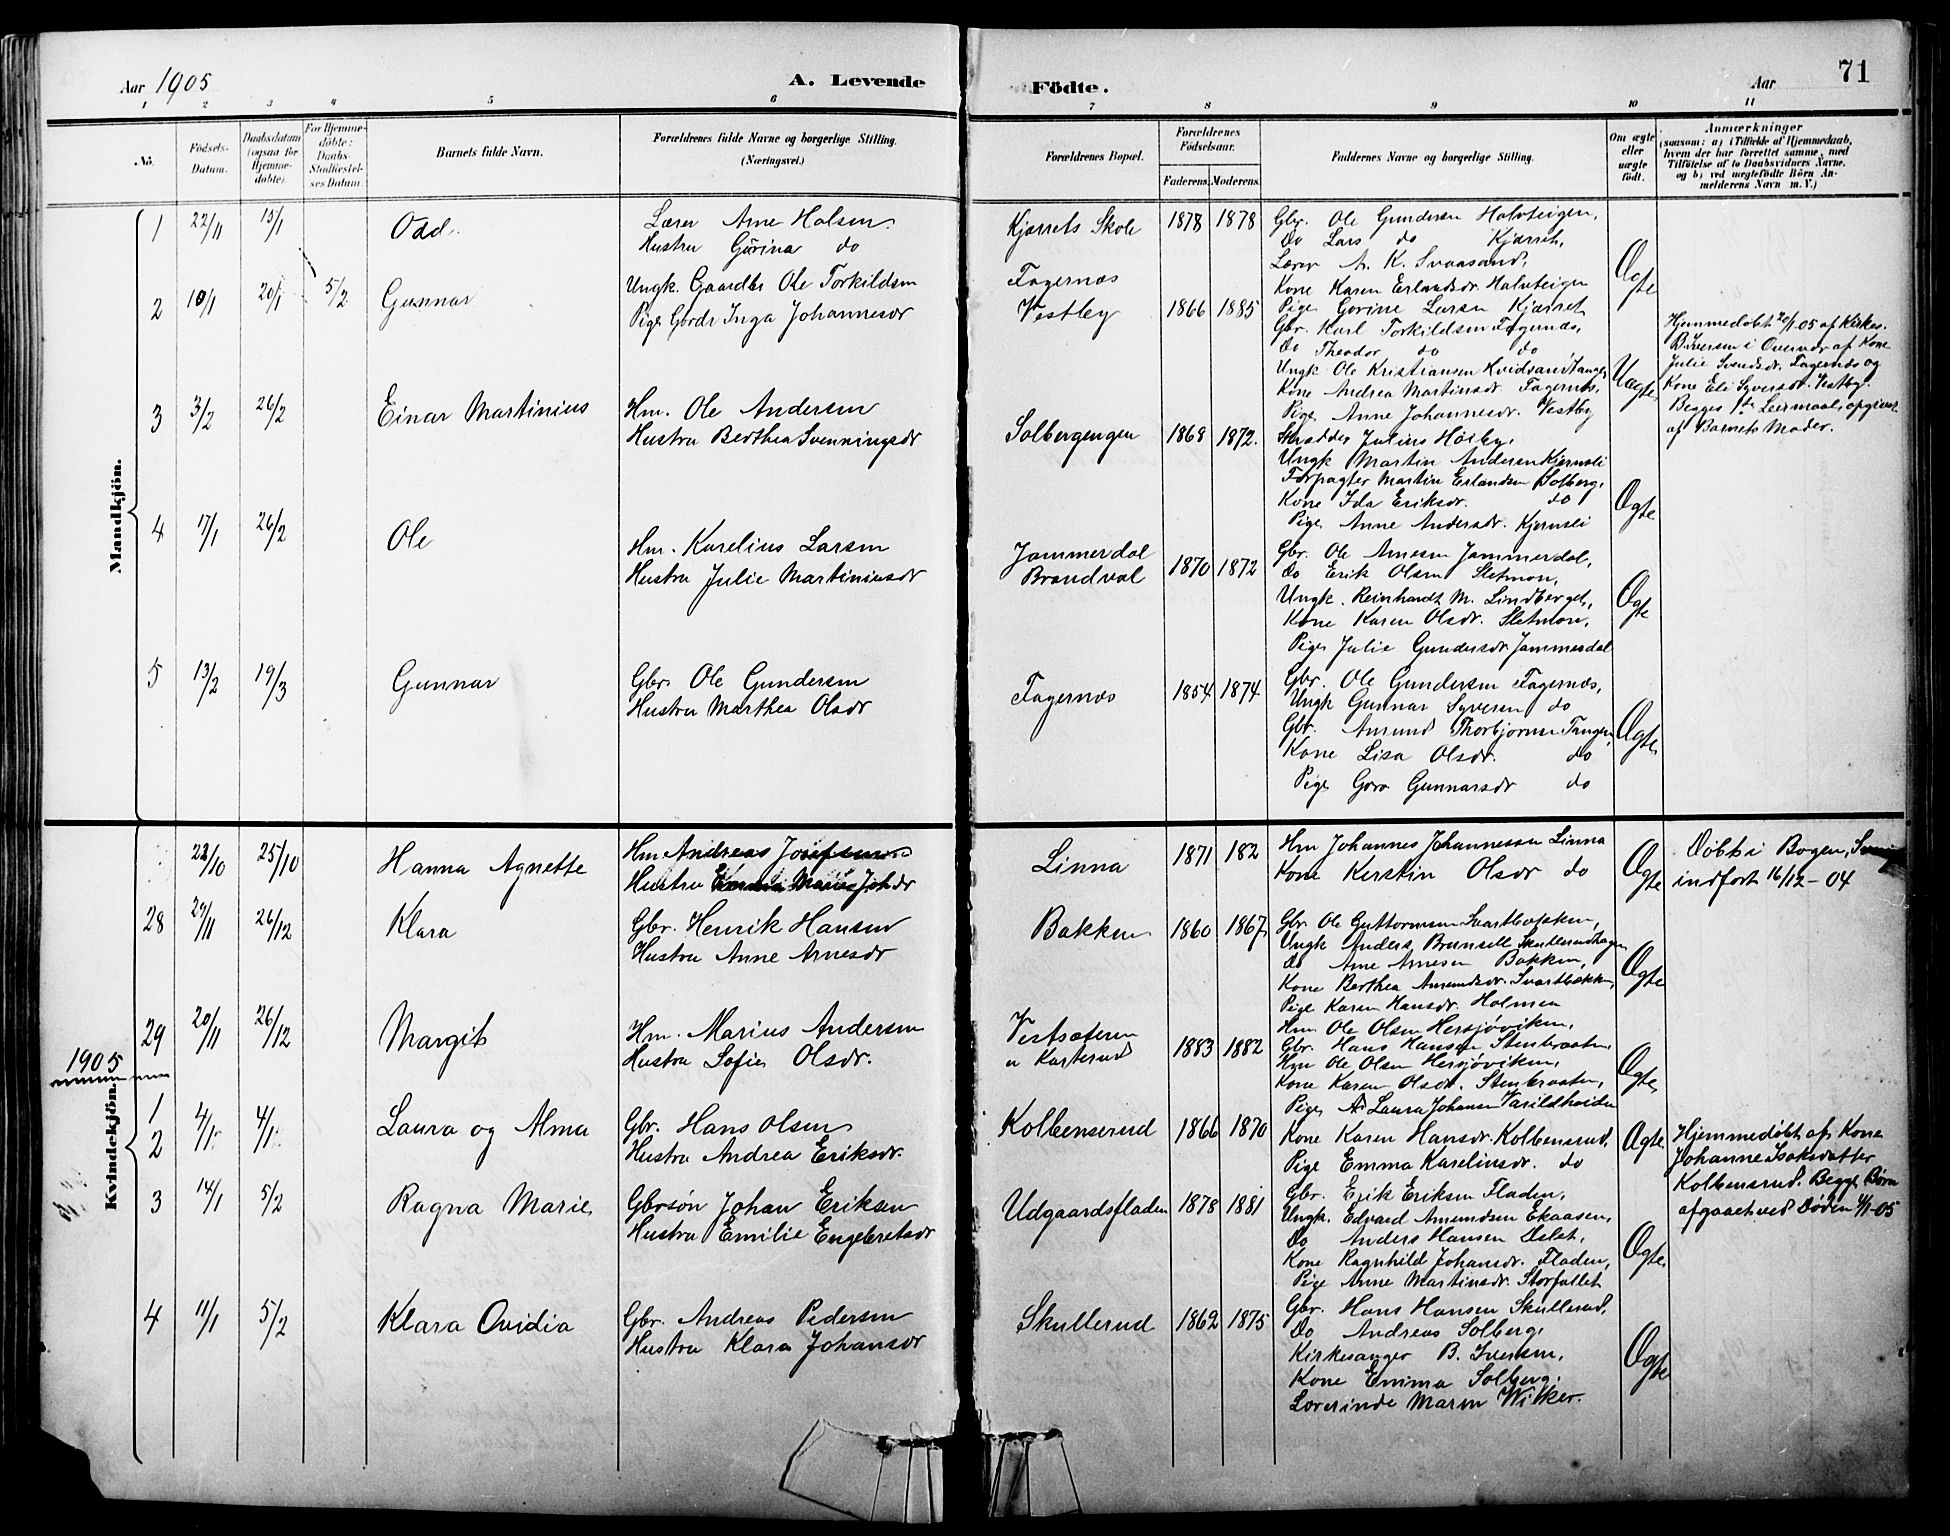 Aar 1905 A. Levende Födte. Aar 71
1 2 3 4 5 6 7 8 9 10 11
No.
Födsels-Datum.
Daabsdatum (ogsaa for Hjemmedöbte).
For Hjemmedöbte: Daabs-Stadfæstelses Datum.
Barnets fulde Navn.
Forældrenes fulde Navne og borgerlige Stilling.
(Næringsvei.)
Forældrenes Bopæl.
Forældrenes Födselsaar.
Faderens. Moderens.
Faddernes Navne og borgerlige Stilling.
Om ægte eller uægte födt.
Anmærkninger
(saasom: a) i Tilfælde af Hjemmedaab, hvem der har forrettet samme, med Tilföielse af to Daabsvidners Navne, og b) ved uægtefödte Börn Anmelderens Navn m. V.)
Mandkjön.
1 22/11 15/1 Odd
Lærer Arne Halsen
Hustru Gurina do
Kjærrets Skole 1878 1878
Gbr. Ole Gundersen Halvteigen,
Do Lars do Kjærret,
Lærer A. K. Svaasand,
Kone Karen Erlandsdr. Halvteigen
Pige Gorine Larsen Kjærret
Ægte
2 10/1 20/1 5/2 Gunnar
Ungk. Gaardbr Ole Torkildsen
Pige Gbrdr Inga Johannesdr
Fagernæs
Vestby 1866 1885
Gbr. Karl Torkildsen Fagernæs,
Do Theodor do do
Ungk Ole Kristiansen Kvidsand Tangen
Kone Andrea Martinsdr Fagernæs,
Pige Anne Johannesdr. Vestby
Uægte
Hjemmedöbt 20/1 05 af Kirkes.
B. Iversen i Overvær af Kone
Julie Svendsdr. Fagernæs og
Kone Eli Syversdr. Vestby.
Begges 1ste Leiermaal, opgivet
af Barnets Moder.
3 3/2 26/2 Einar Martinius
Hm. Ole Andersen
Hustru Berthea Svenningsdr
Solbergengen 1868 1872.
Skrædder Julius Höiby,
Ungk Martin Andersen Kjernsli
Forpagter Martin Erlandsen Solberg,
Kone Ida Eriksdr. do
Pige Anne Andersdr. Kjernsli
Ægte
4 17/1 26/2 Ole
Hm. Karelius Larsen
Hustru Julie Martiniusdr
Jammerdal
Brandval 1870 1872
Gbr. Ole Arnesen Jammerdal,
Do Erik Olsen Sletmoen,
Ungk. Reinhardt M. Lindberget,
Kone Karen Olsdr. Sletmoen,
Pige Julie Gundersdr Jammerdal
Ægte
5 13/2 19/3 Gunnar
Gbr. Ole Gundersen
Hustru Marthea Olsdr
Fagernæs 1854 1874
Gbr. Ole Gundersen Fagernæs,
Ungk Gunnar Syversen do
Gbr. Amund Thorbjörnsen Tangen,
Kone Lisa Olsdr. do
Pige Goro Gunnarsdr do
Ægte
Kvindekjön.
23/10 25/10 Hanna Agnette
Hm Andreas Josefsen
Hustru Emma Marie Johdr
Linna 1871 182
Hm Johannes Johannessen Linna
Kone Kerstin Olsdr do
Ægte
Döbt i Bogen,
indfört 16/12-04
28 29/11 26/12 Klara
Gbr. Henrik Hansen
Hustru Anne Arnesdr
Bakken 1860 1867
Gbr Ole Guttormsen Svartbækken,
Ungk Anders Brunsell Skullerudhagen
Do Arne Arnesen Bakken,
Kone Berthea Amundsdr. Svartbækken,
Pige Karen Hansdr. Holmen
Ægte
29 20/11 26/12 Margit
Hm. Marius Andersen
Hustru Sofie Olsdr.
Vestsæteren
u Karterud 1883 1882
Hm. Ole Olsen Hersjöviken,
Gbr. Hans Hansen Stenbraaten,
Hm Ole Olsen Hersjöviken,
Kone Karen Olsdr. Stenbraaten,
Pige Laura Johansen Varildheiden
Ægte
1905
1 2 4/1 4/1 Laura og Alma
Gbr. Hans Olsen
Hustru Andrea Eriksdr.
Kolbenserud 1866 1870
Kone Karen Hansdr. Kolbensrud,
Pige Emma Karelinsdr. do
Ægte
Hjemmedöbt af Kone
Johanne Isaksdatter
Kolbensrud. Begge Börn
afgaaet ved Döden 4/1-05
3 14/1 5/2 Ragna Marie
Gbrsön Johan Eriksen
Hustru Emilie Engebretsdr
Udgaardsfladen 1878 1881
Gbr. Erik Eriksen Fladen,
Ungk. Edvard Amundsen Ekaasen,
Do Anders Hansen Oslet,
Kone Ragnhild Johansdr. Fladen,
Pige Anne Martinsdr. Storfallet
Ægte
4 11/1 5/2 Klara Ovidia
Gbr. Andreas Pedersen
Hustru Klara Johansdr
Skullerud 1862 1875
Gbr. Hans Hansen Skullerud,
Do Andreas Solberg,
Kirkesanger B. Iversen,
Kone Emma Solberg.
Lærerinde Maren Wilker.
Ægte